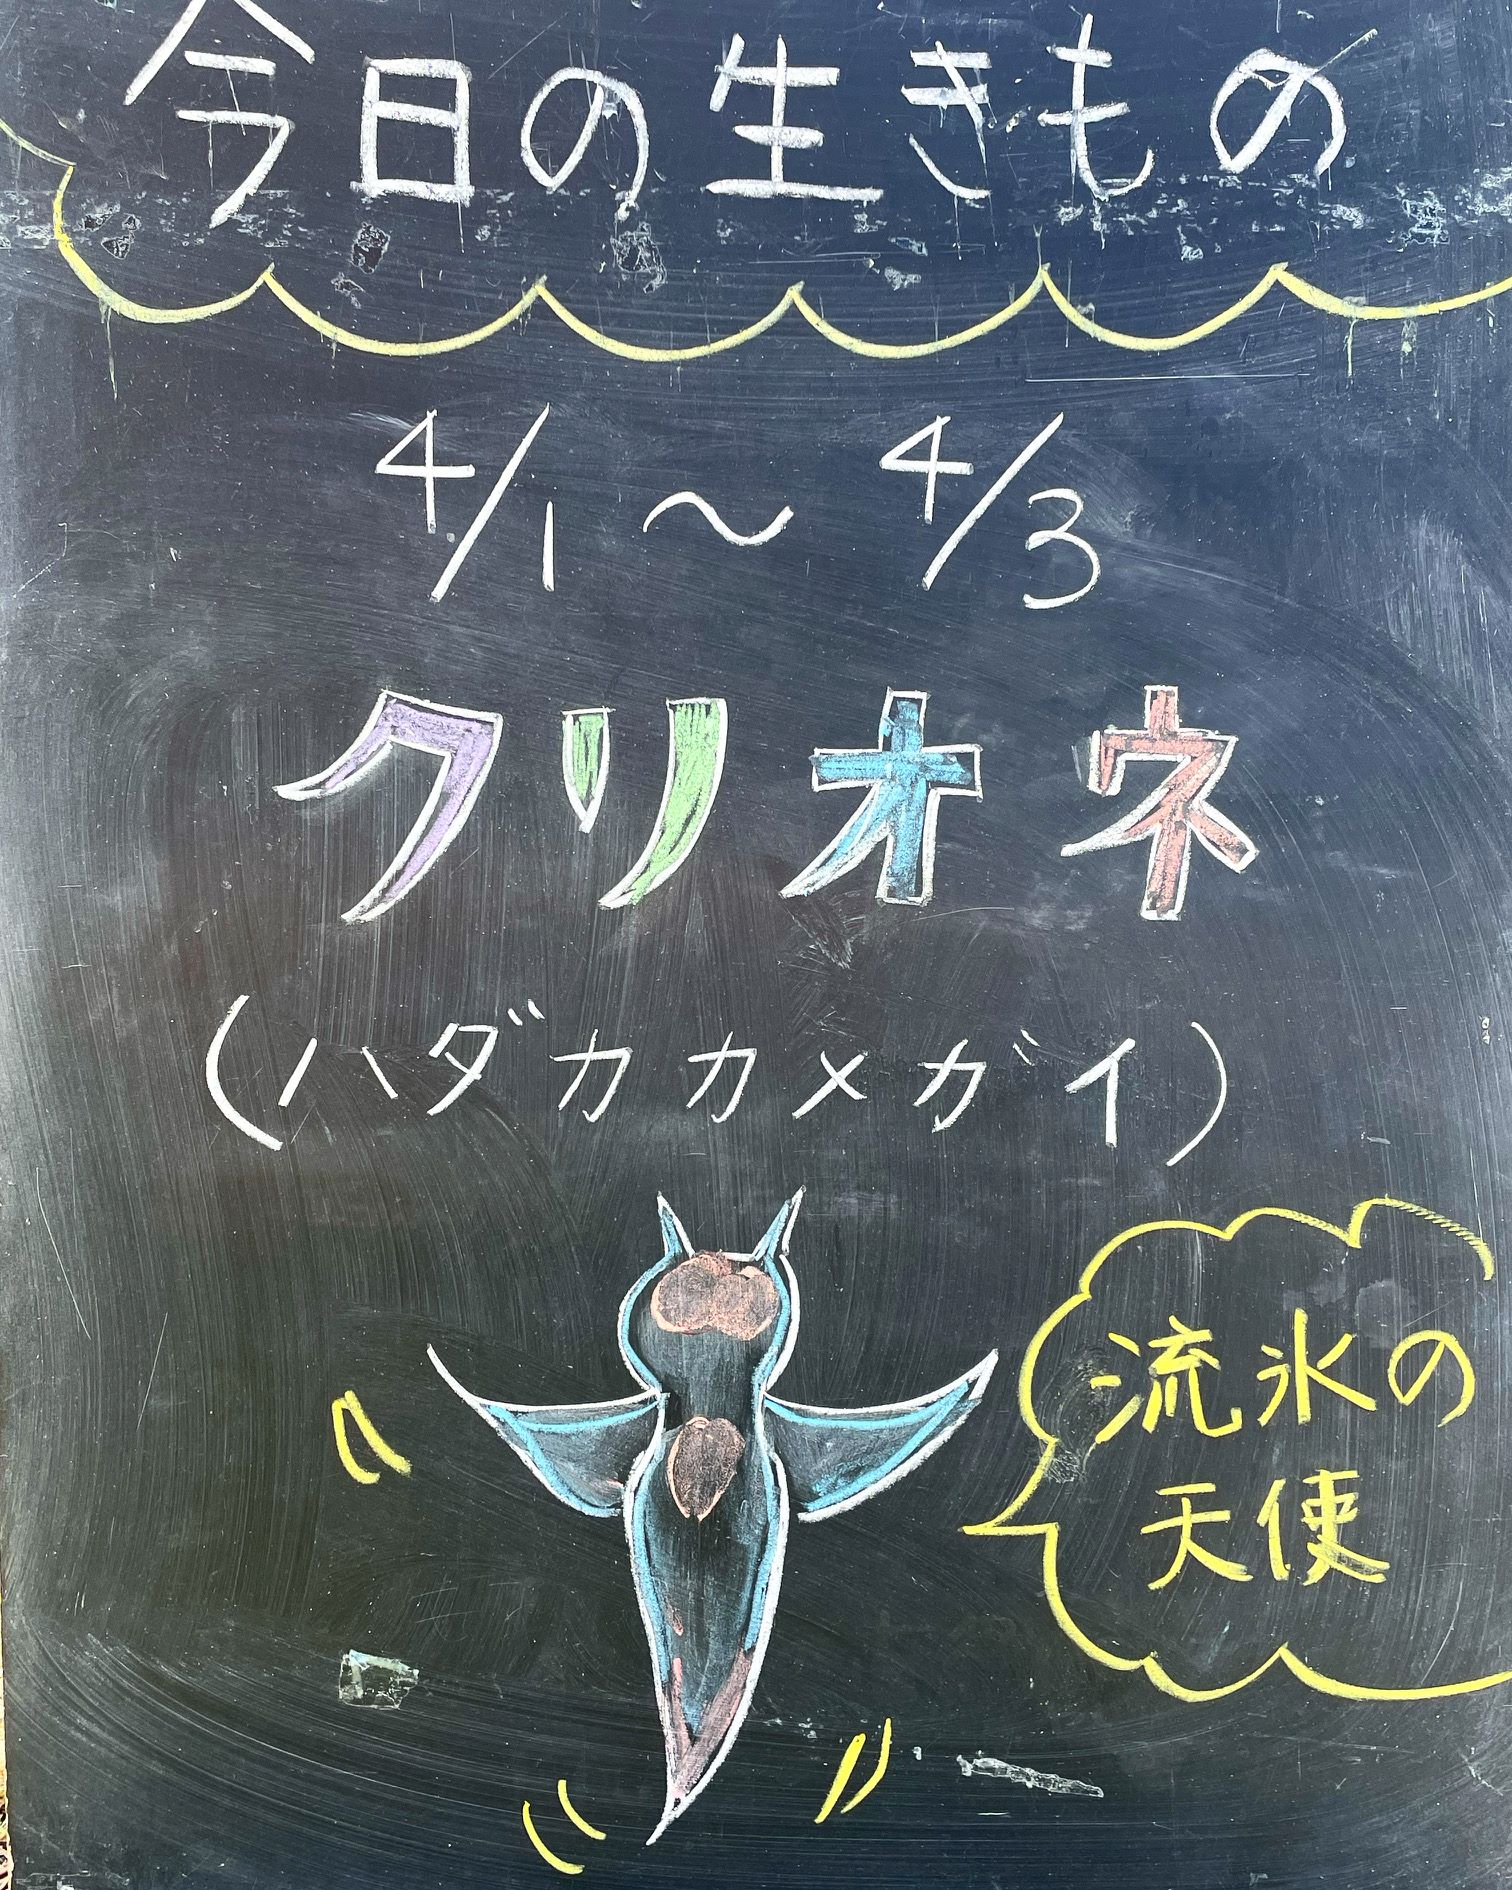 今日の生きもの
4/1〜4/3
クリオネ
(ハダカカメガイ)
流氷の
天使